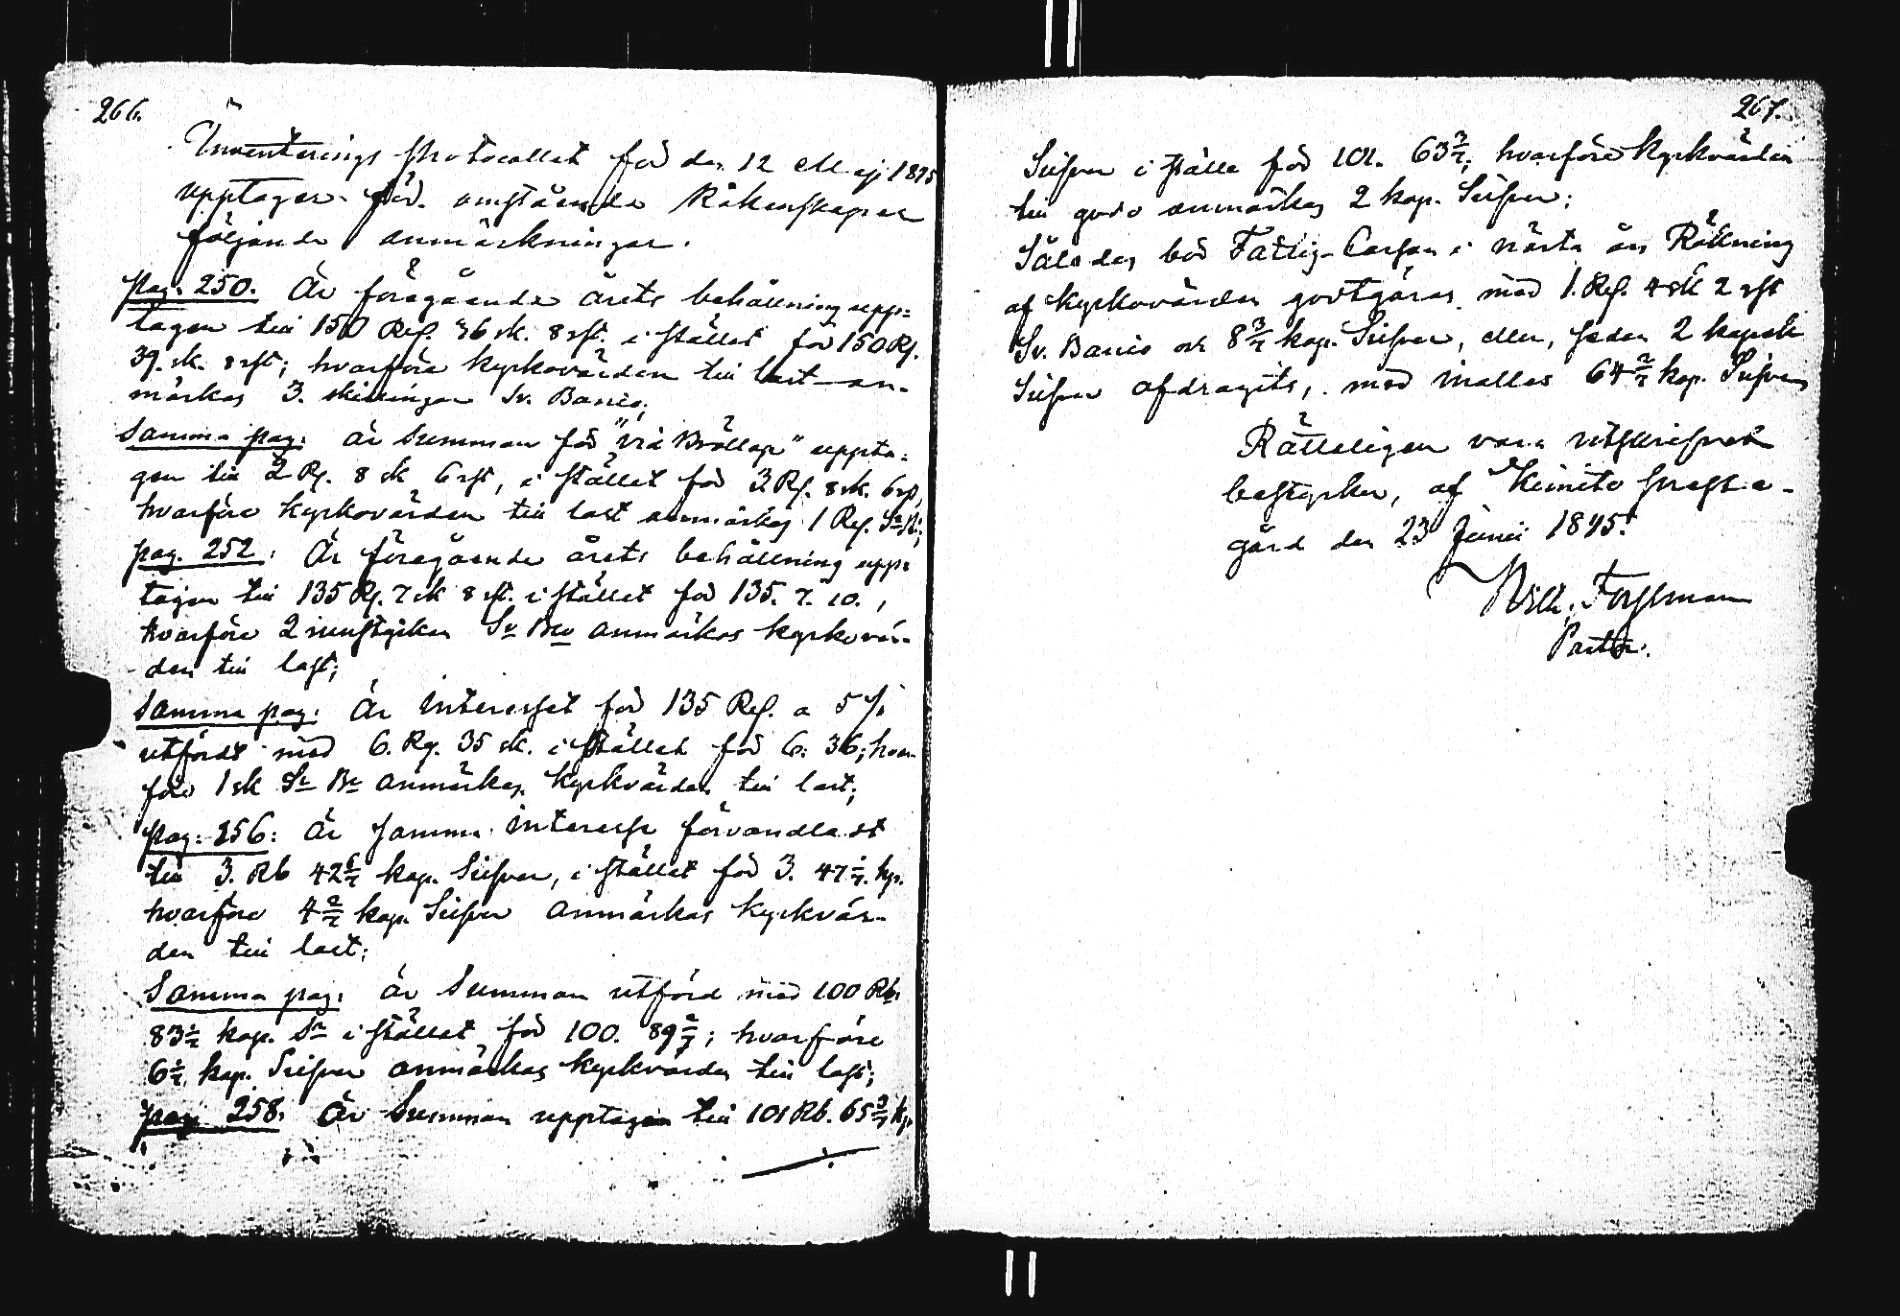 266.
Inventerings protocollet för den 12 Maji 1845
upptager för omstående Räkenskaper
följande anmärkningar.
pag. 250. Är föregående årets behållning upp=
tagen till 150 Rd. 36 sk. 8 rst. i stället för 150 Rd.
39. sk. 8 rst; hvarföre kyrkovärden till last an-
märkas 3. skillingar Sv. Banco;
Samma pag: är Summan för "vid Bröllop" uppta=
gen till 2 Rd. 8 sk 6 rst, i stället för 3 Rd. 8 sk. 6 rst,
hvarföre kyrkovärden till last anmärkas 1 Rd.
pag. 252: Är föregående årets behållning upp=
tagen till 135 Rd. 7 sk 8 rst. i stället för 135. 7. 10.,
hvarföre 2 runstyken Sv Bco anmärkas kyrkovär-
den till last;
Samma pag: Är interesset för 135 Rd. a 5 %
utfördt med 6. Rd. 35 sk. i stället för 6: 36; hvar-
före 1 sk Sv Bo anmärkas kyrkvärden till last;
pag: 256: Är samma interesse förvandladt
till 3. Rb 42 6/7 kop. Silfver, i stället för 3. 47 1/7 kp.
hvarföre 4 2/7 kop. Silfver anmärkas kyrkvär-
den till last;
Samma pag: är Summan utförd med 100 Rb
83 1/7 kop. Sr i stället för 100. 89 2/7; hvarföre
6 1/7 kop. Silfver anmärkas kyrkvärden till last;
pag. 258: Är Summan upptagen till 101 Rb. 65 3/7 k,
267.
Silfver i ställe för 101. 63 3/7; hvarföre kyrkvärden
till godo anmärkas 2 kop. Silfver;
Således bör Fattig-Cassan i nästa års Räkning
af kyrkovärden godtgöras med 1. Rd. 4 sk 2 rst
Sv. Banco och 8 3/7 kop. Silfver, eller, sedan 2 kopek
Silfver afdragits, med inalles 64 2/7 kop. Silfver
Rätteligen vara utskrifvet
bestyrker, af Kimito presta-
gård den 23 Junii 1845.
Wilh: Forssman
Pastor.